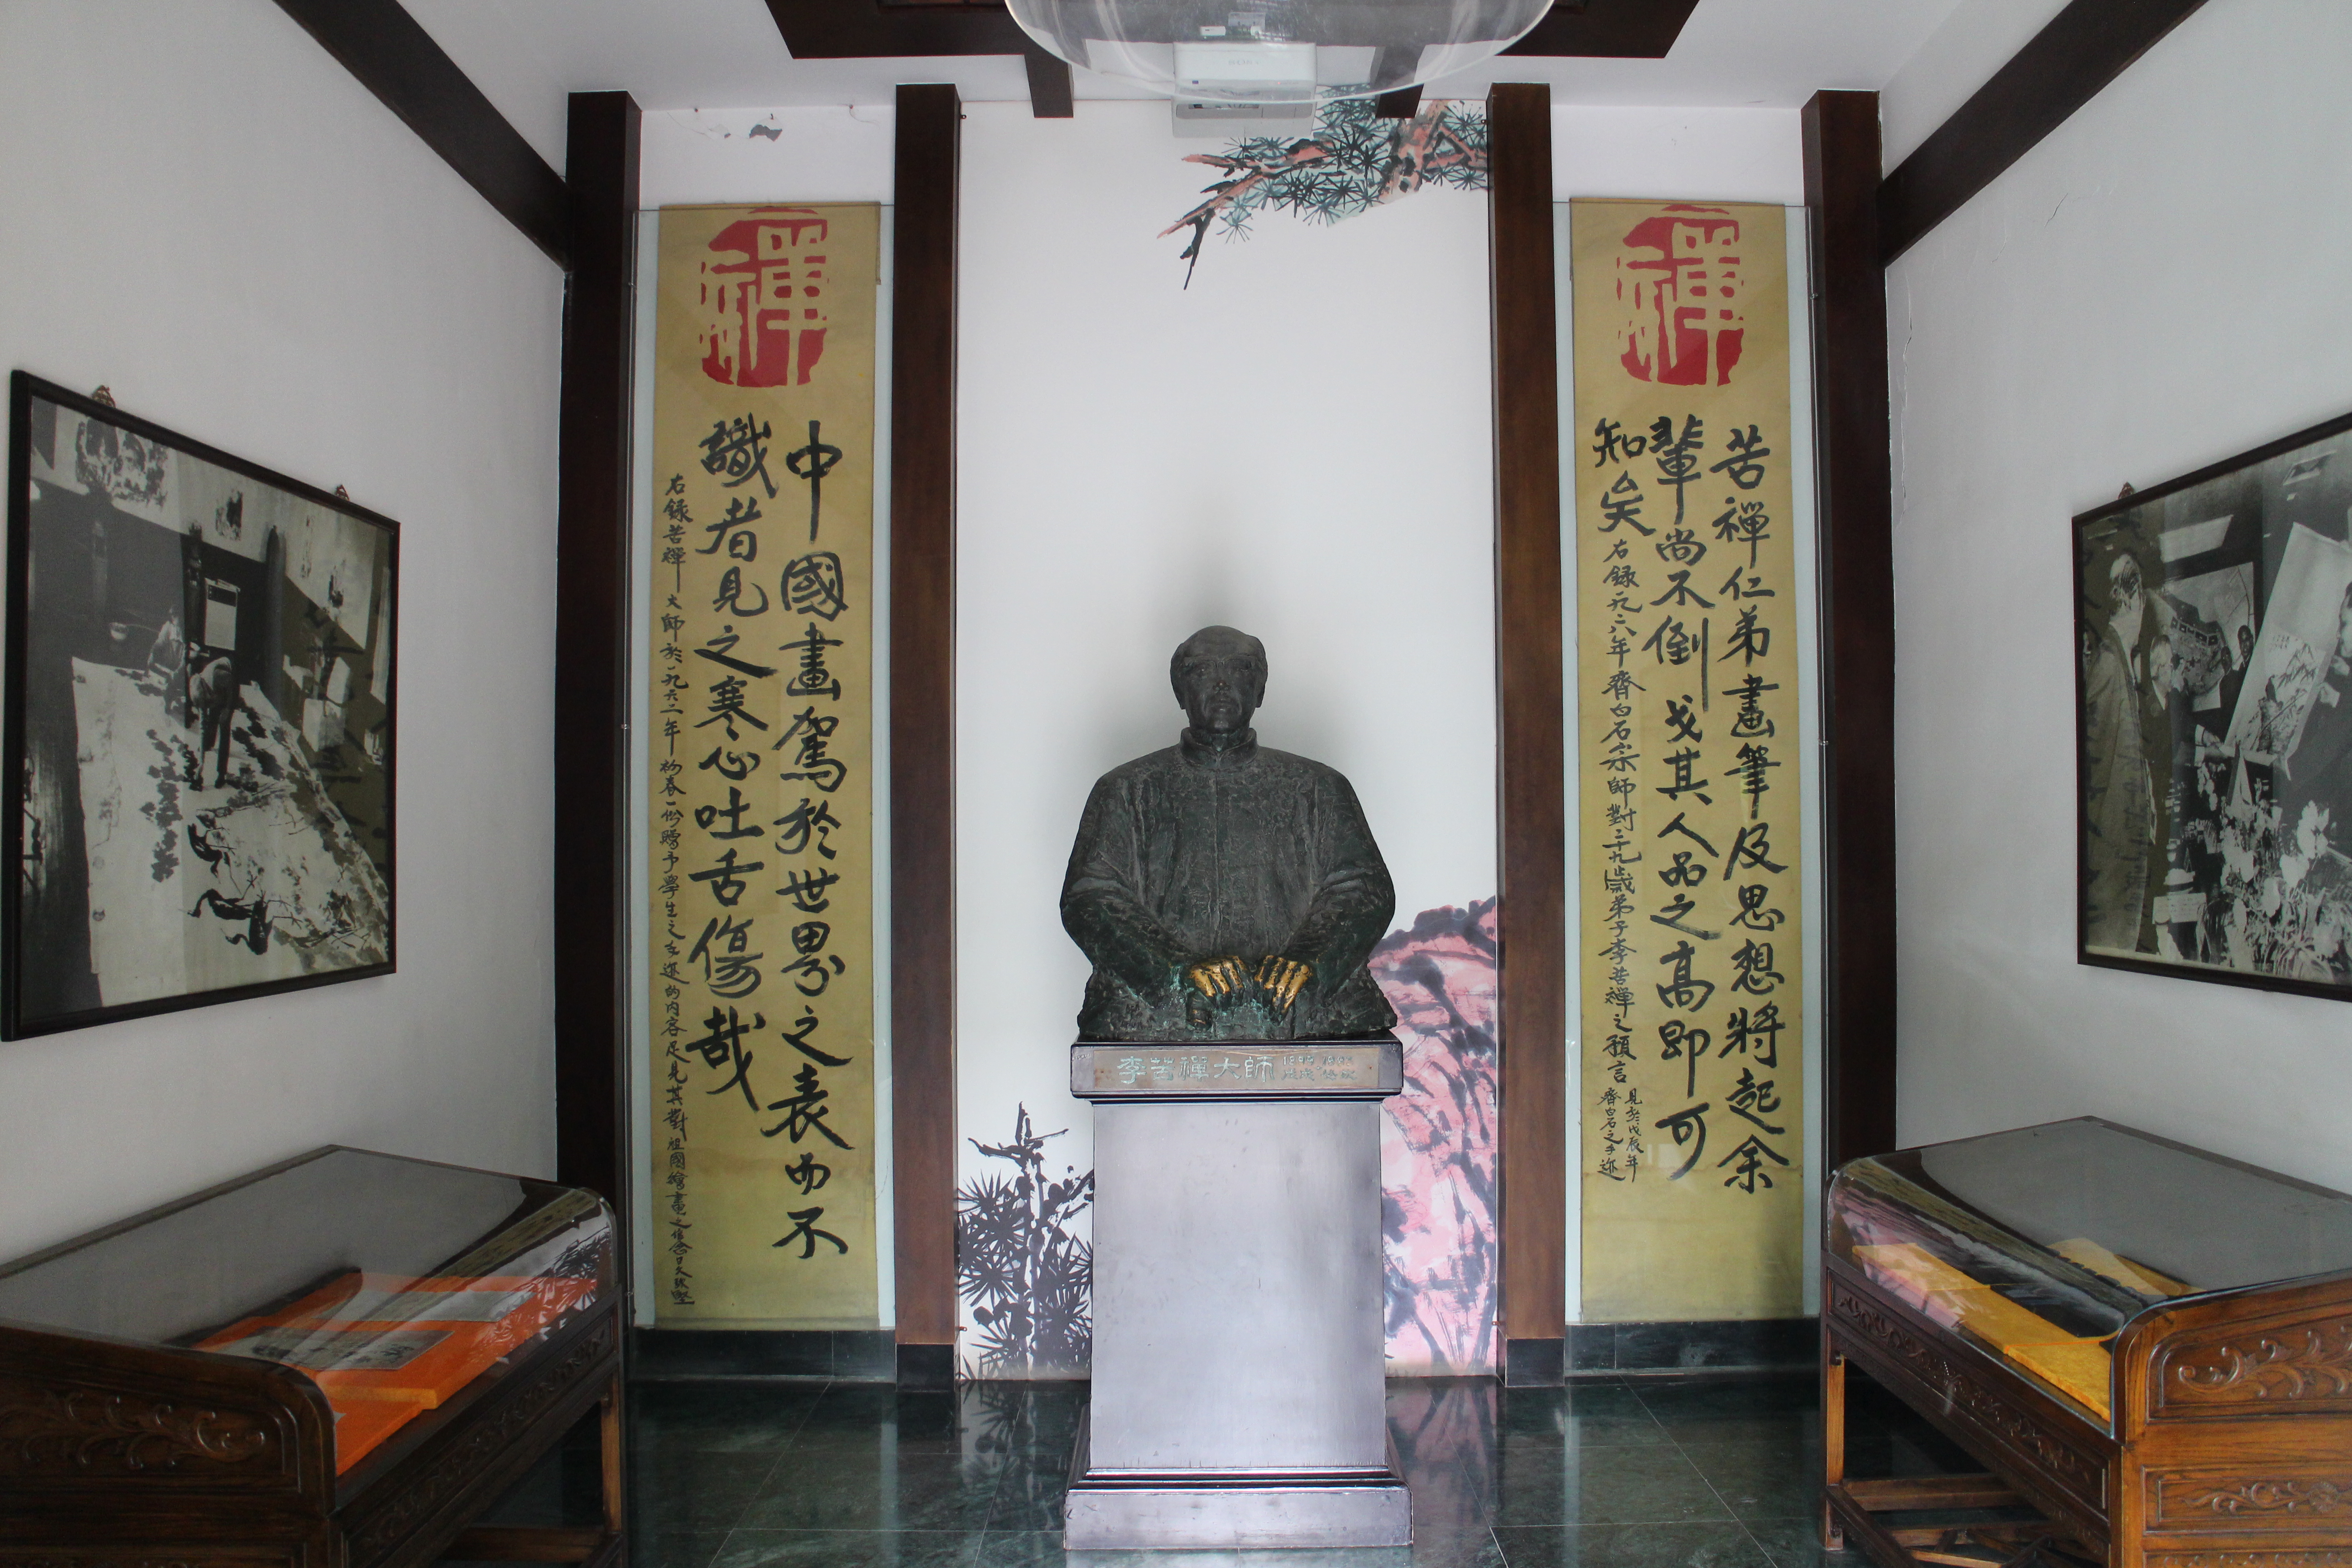 禪
苦禪仁弟畫筆及思想將起余
輩尚不倒戈其人品之高即可
知矣
右錄一九二八年齊白石宗師對二十九歲弟子李苦禪之預言
見於戊辰年
齊白石之手迹
禪
中國畫駕於世界之表而不
識者見之寒心吐舌傷哉
右錄苦禪大師於一九六二年初春一份賜予學生之手迹的內容足見其對祖國繪畫之信念
李苦禪大師